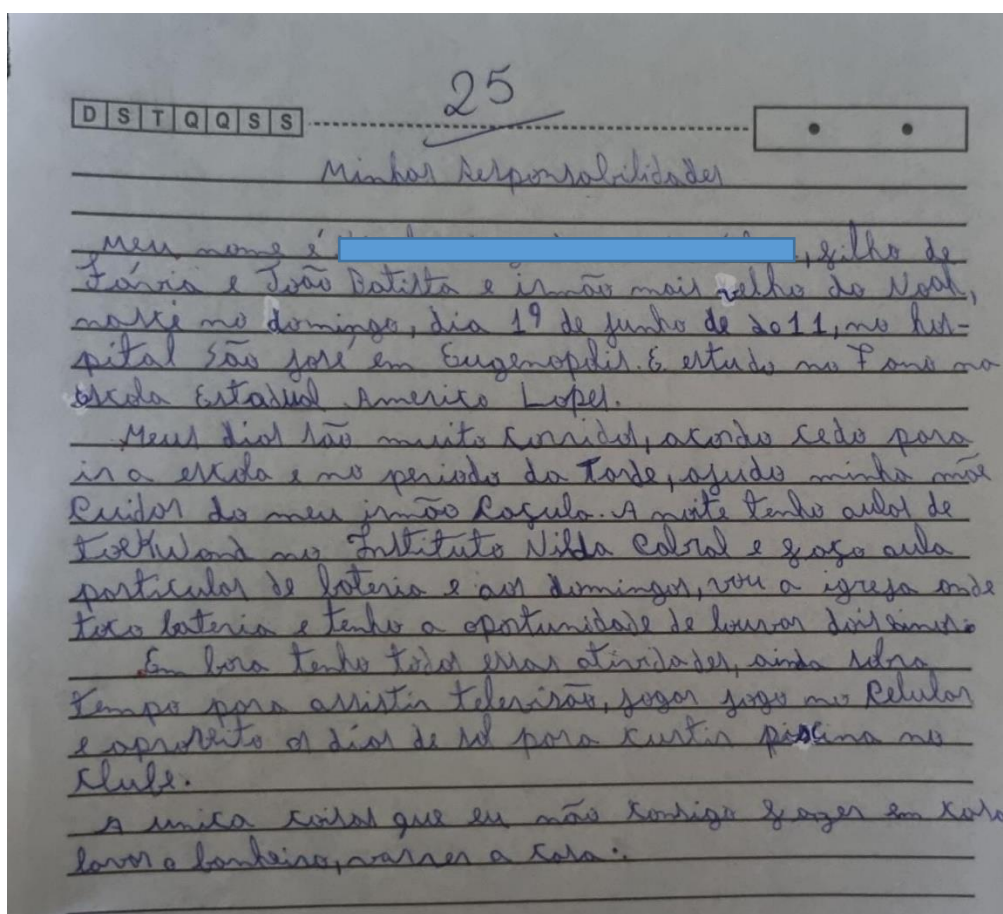 25
D S T Q Q S S
Minhas Responsabilidades
Meu nome é , filho de
Fávia e João Batista e irmão mais velho do Noah,
nasci no domingo, dia 19 de junho de 2011, no hos-
pital São josé em Eugenopolis. E estudo no 7 ano na
escola Estadual Americo Lopes.
Meus dias são muito corridos, acordo cedo para
ir a escola e no periodo da Tarde, ajudo minha mãe
Cuidar do meu irmão Caçula. A noite tenho aulas de
no Instituto Nilda Cabral e faço aula
particular de bateria e aos domingos, vou a igreja onde
toco bateria e tenho a oportunidade de louvar
Em bora tenho todas essas atividades, ainda sobra
tempo para assistir televisão, jogar jogo no Celular
e aproveito os dias de sol para curtir piscina no
clube.
A unica coisas que eu não consigo fazer em casa
lavar o banheiro, varrer a casa.